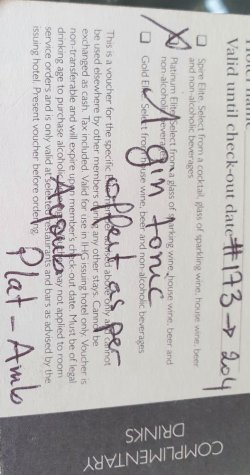 COMPLIMENTARY
DRINKS
Valid until check-out date #173 → 204
Spire Elite: Select from a cocktail, glass of sparkling wine, house wine, beer
and non-alcoholic beverages
Platinum Elite: Select from a glass of sparkling wine, house wine, beer and
non-alcoholic beverages
Gold Elite: Select from house wine, beer and non-alcoholic beverages
1 gin tonic
This is a voucher for the specific
only and cannot
be used elsewhere by other members or during any other stays. Cannot be
exchanged as cash. Tax included. Valid for use in IHG issuing hotel only. Voucher is
non-transferable and will expire upon member's check-out date. Must be of legal
drinking age to purchase alcoholic
may not applied to room
service orders and is only valid at select restaurants and bars as advised by the
issuing hotel. Present voucher before ordering.
offert as per
Plat - Amb